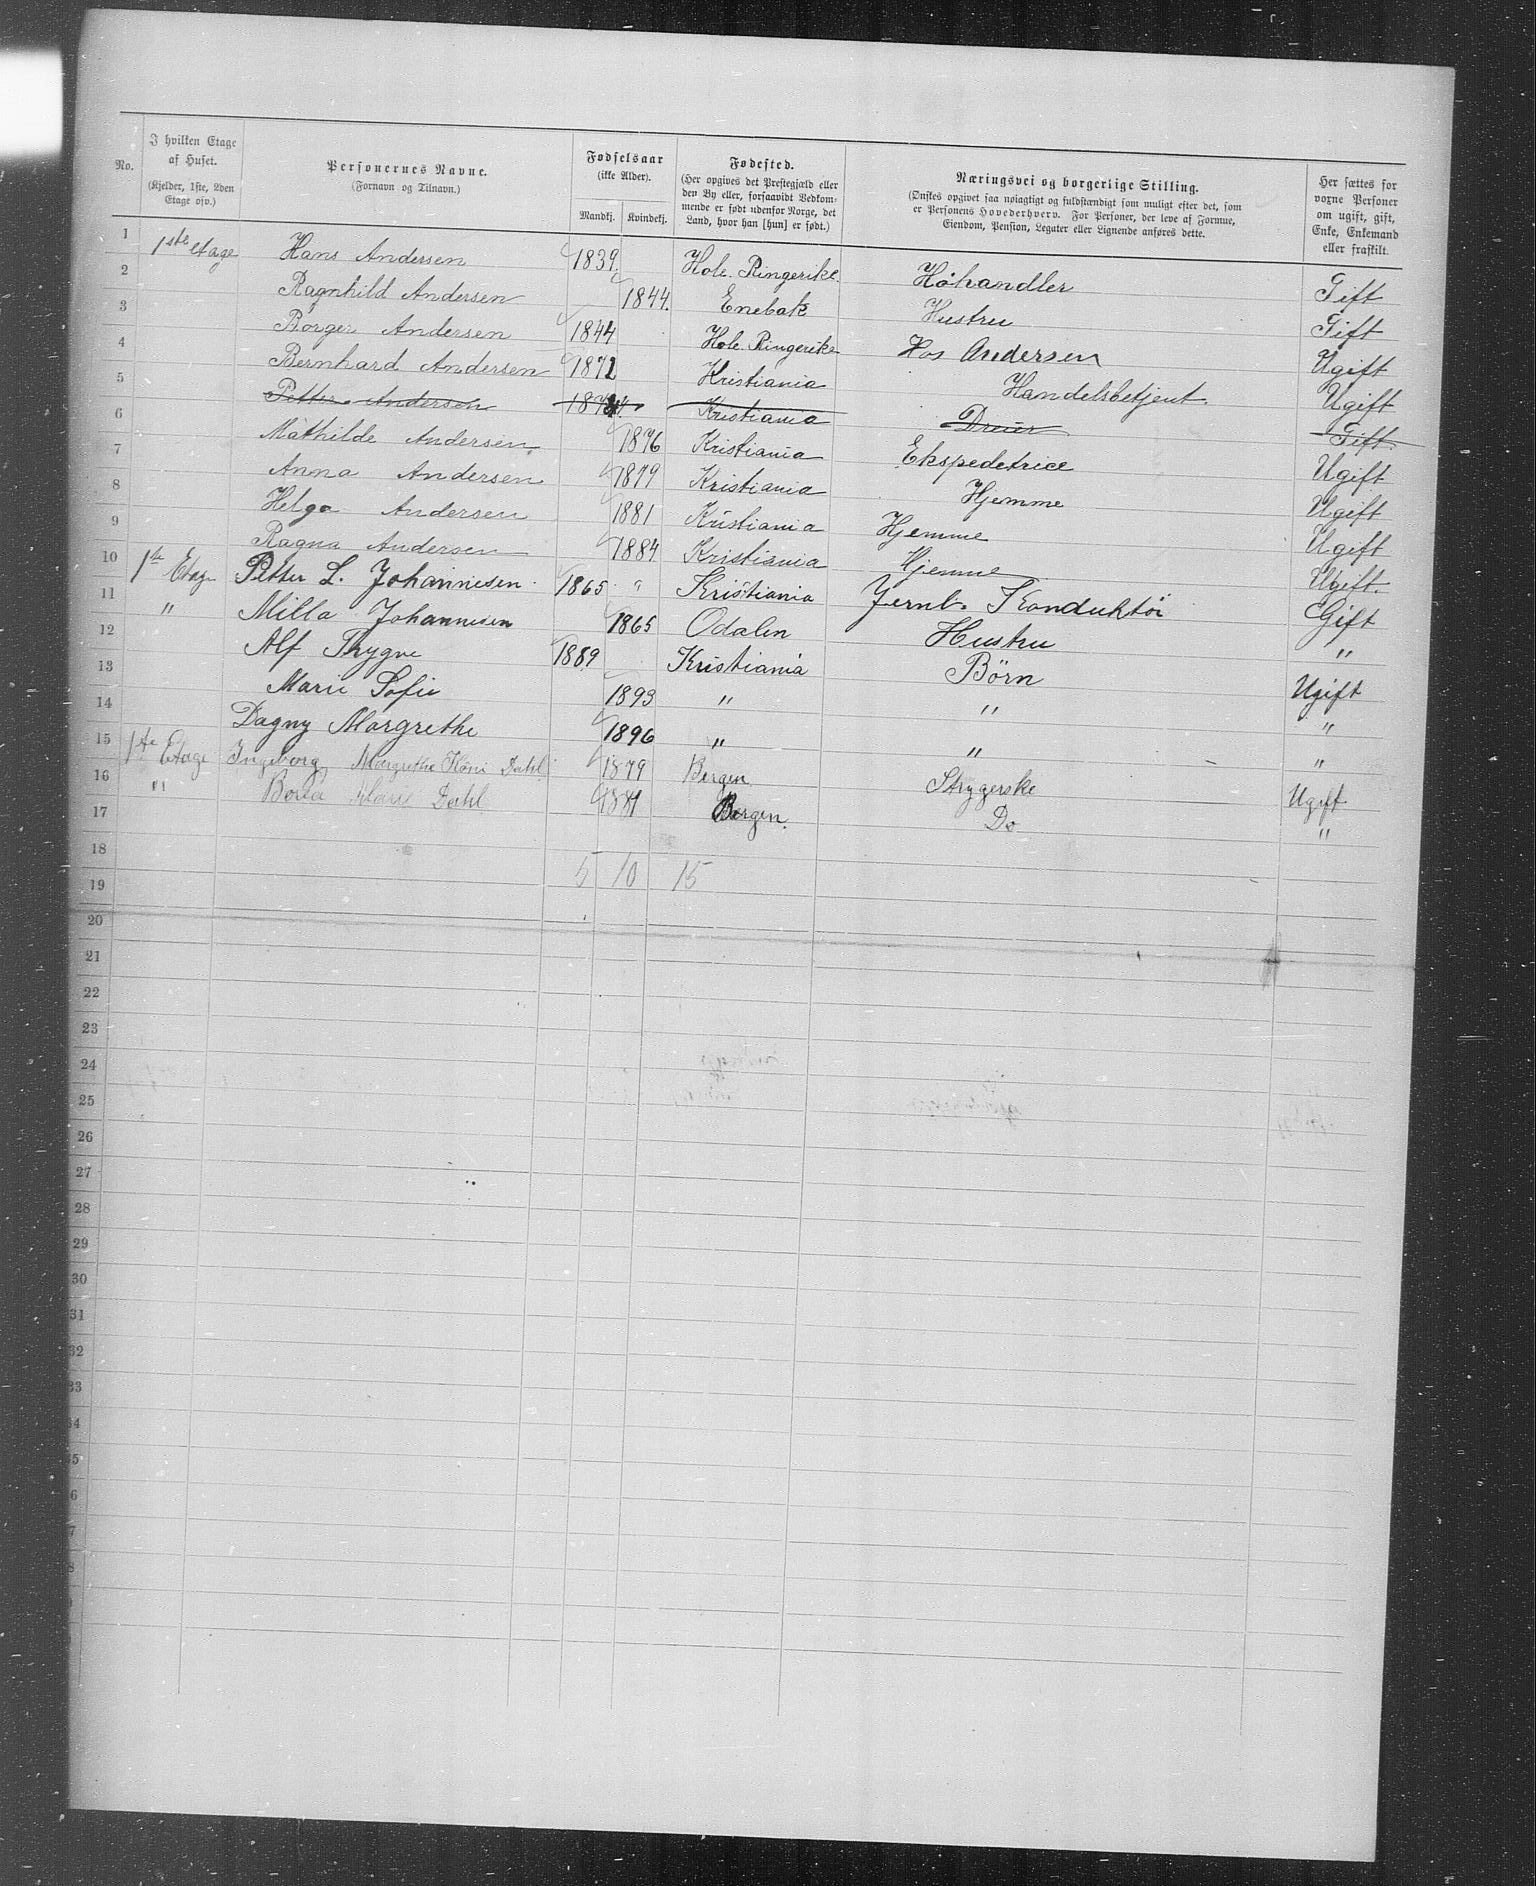 No.
I hvilken Etage af Huset.
(Kjelder, 1ste, 2den Etage osv.)
Personernes Navne.
(Fornavn og Tilnavn.)
Fødselsaar
(ikke Alder).
Mandkj. Kvindekj.
Fødested.
(Her opgives det Prestegjæld eller den By eller, forsaavidt Vedkommende er født udenfor Norge, det Land, hvor han [hun] er født.)
Næringsvei og borgerlige Stilling.
(Ønskes opgivet saa nøiagtigt og fuldstændigt som muligt efter det, som er Personens Hovederhverv. For Personer, der leve af Formue, Eiendom, Pension, Legater eller Lignende anføres dette.
Her sættes for voxne Personer om ugift, gift, Enke, Enkemand eller fraskilt.
1 1ste etage Hans Andersen 1839. Hole. Ringerike. Høhandler Gift
2 Ragnhild Andersen 1844. Enebak Hustru Gift
3 Børger Andersen 1844 Hole. Ringerike Hos Andersen Ugift
4 Bernhard Andersen 1872 Kristiania Handelsbetjent. Ugift
5 Petter Andersen 1874. Kristiania Dreier Gift.
6 Mathilde Andersen 1876 Kristiania Ekspedetrice Ugift
7 Anna Andersen 1879 Kristiania Hjemme Ugift
8 Helga Andersen 1881 Kristiania Hjemme Ugift
9 Ragna Andersen 1884 Kristiania Hjemme Ugift.
10 1ste Etage Petter L. Johannesen 1865 " Kristiania Jernb. Konduktør Gift
11 " Milla Johannesen 1865 Odalen Hustru "
12 Alf Thrygve 1889 Kristiania Børn Ugift
13 Marie Sofie 1893 " " "
14 Dagny Margrethe 1896 " " "
15 1ste Etage Ingeborg Margrethe Dahl 1879 Bergen Strygerske Ugift
16 " Marie Dahl 1881 Bergen. Do "
17
18
19 5 10 15
20
21
22
23
24
25
26
27
28
29
30
31
32
33
34
35
6
7
8